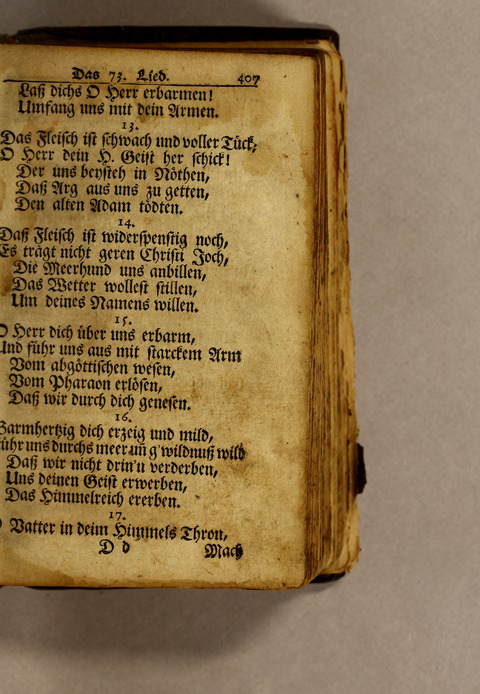 Das 73. Lied. 407
Laß dichs O Herr erbarmen!
Umfang uns mit dein Armen.
13.
Das Fleisch ist schwach und voller Tück,
O Herr dein H. Geist her schick!
Der uns beysteh in Nöthen,
Daß Arg aus uns zu getten,
Den alten Adam tödten.
14.
Daß Fleisch ist widerspenstig noch,
Es trägt nicht geren Christi Joch,
Die Meerhund uns anbillen,
Das Wetter wollest stillen,
Um deines Namens willen.
15.
O Herr dich über uns erbarm,
Und führ uns aus mit starckem Arm
Vom abgöttischen wesen,
Vom Pharaon erlösen,
Daß wir durch dich genesen.
16.
Barmhertzig dich erzeig und mild,
führ uns durchs meer uñ g'wildnuß wild
Daß wir nicht drin'n verderben,
Uns deinen Geist erwerben,
Das Himmelreich ererben.
17.
O Vatter in deim Himmels Thron,
D d Mach